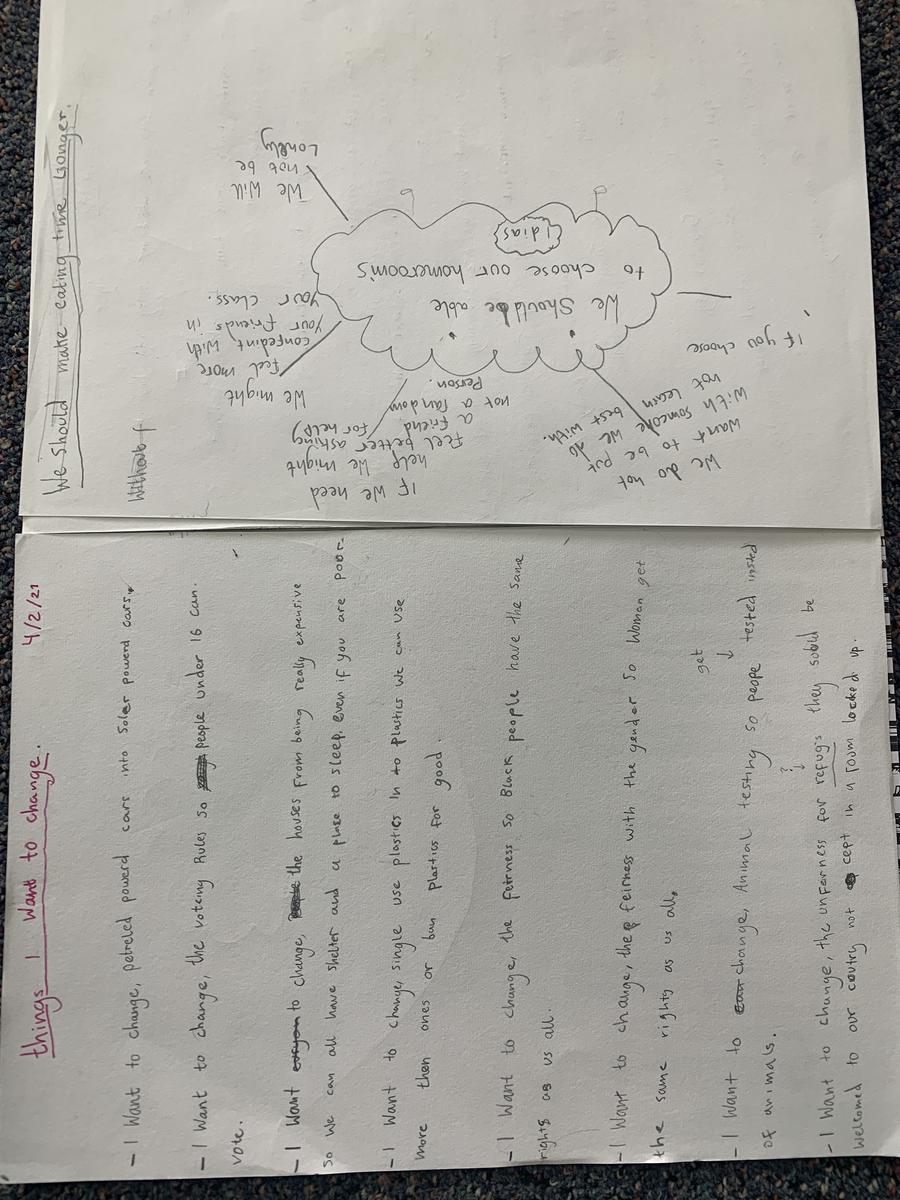 things I Want to change. 4/2/21
- I Want to change, petreled powerd cars into Soler powerd cars.
- I Want to change, the voteing Rules so people under 16 can
vote.
- I Want to change, the houses from being really expensive
so we can all have shelter and a plase to sleep even if you are poor.
- I Want to change, single use plastics in to plastics we can use
more then ones or ban plastics for good.
- I Want to change, the feirness so Black people have the same
rights as us all.
- I Want to change, the feirness with the gender so Woman get
the same rights as us all.
get
- I Want to change, Animal testing so peope tested insted
of animals.
?
- I Want to change, the unfeirness for refugs they sould be
welcomed to our coutry not cept in a room locked up.
We should make eating time Longer.
Without f
We Should be able
to choose our homeroom's
Idias
We Will
not be
Lonely
We might
feel more
confedint with
your friends in
your class.
If We need
help We might
feel better asking
a friend for help
not a random
Person.
We do not
want to be put
with someone we do
not learn best with.
If you choose